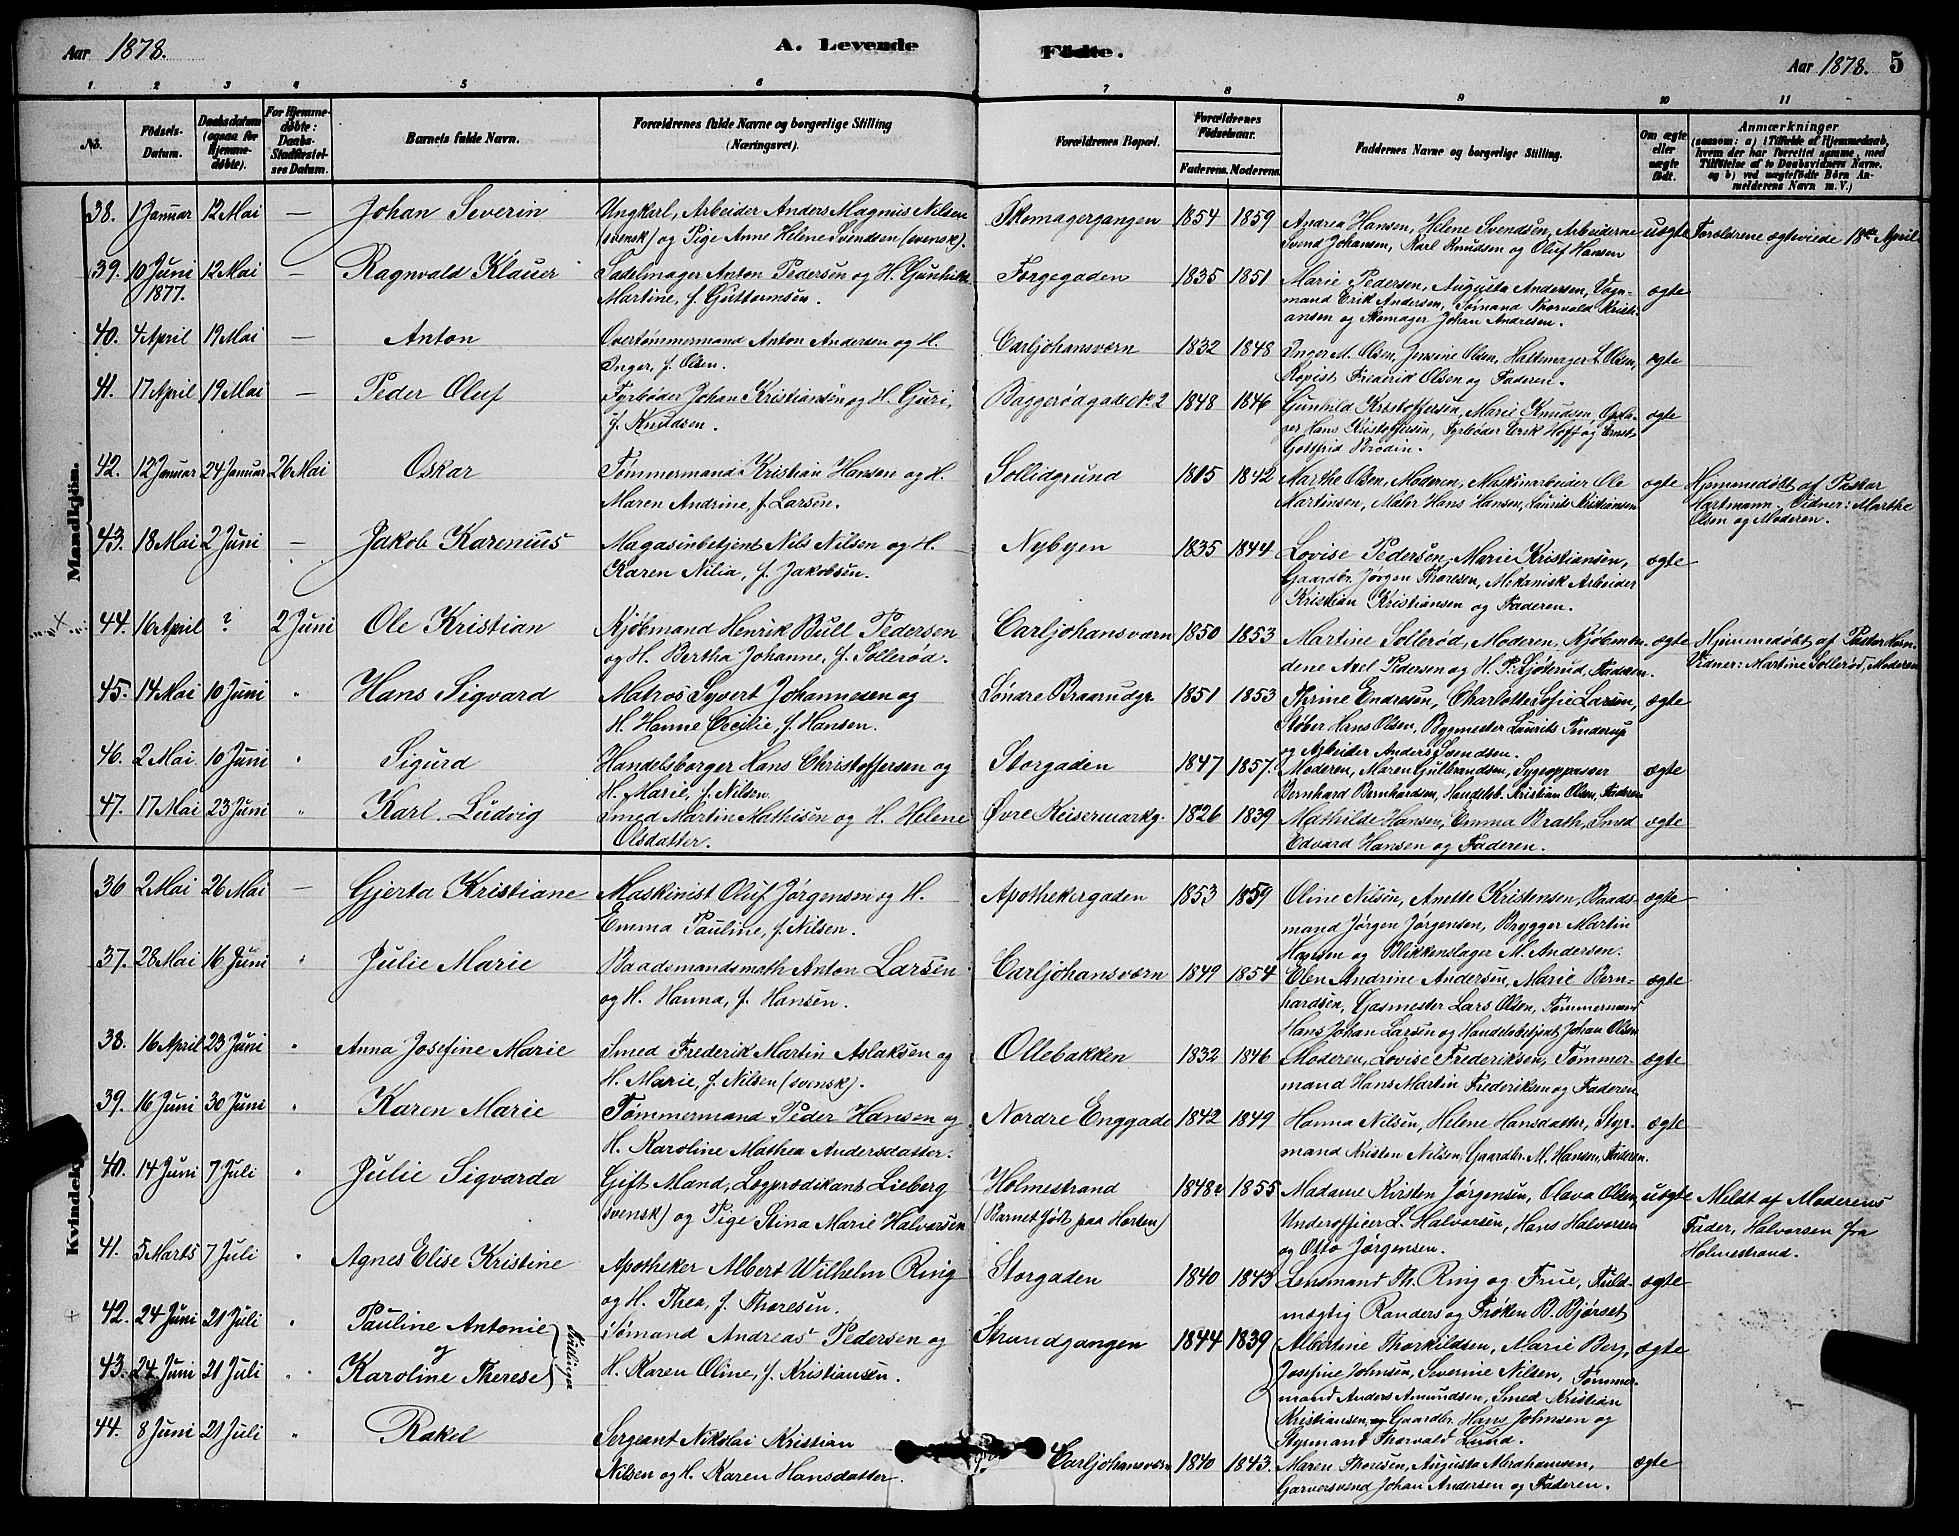 Aar 1878. A. Levende Födte. Aar 1878. 5
1 2 3 4 5 6 7 8 9 10 11
No. Födsels-Datum. Daabsdatum (ogsaa for Hjemmedöbte). For Hjemmedöbte: Daabs-Stadfæstelses Datum. Barnets fulde Navn. Forældrenes fulde Navne og borgerlige Stilling (Næringsvei). Forældrenes Bopæl. Forældrenes Födselsaar. Faderens. Moderens. Faddernes Navne og borgerlige Stilling. Om ægte eller uægte födt. Anmærkninger (saasom: a) i Tilfælde af Hjemmedaab, hvem der har forrettet samme, med Tilföielse af to Daabsvidners Navne, og b) ved uægtefödte Börn Anmelderens Navn m. V.)
Mandkjön.
38. 1 Januar 12 Mai — Johan Severin Ungkarl, Arbeider Anders Magnus Nilsen Skomagergangen 1854 1859 Andrea Hansen, Helene Svendsen, Arbeiderne uægte Forældrene ægteviede 18de April
(svensk) og Pige Anne Helene Svendsen (svensk). Svend Johansen, Karl Knudsen og Oluf Hansen
39. 10 Juni 12 Mai — Ragnvald Klauer Sadelmager Anton Pedersen og H. Gunhild Torgegaden 1835 1851 Marie Pedersen, Augusta Andersen, Vogn- ægte
1877. Martine, f. Guttormsen. mand Erik Andersen, Sømand Thorvald Kristi-
ansen og Skomager Johan Andresen.
40. 4 April 19 Mai — Anton Overtømmermand Anton Andersen og H. Carljohansværn 1832 1848 Inger M. Olsen, Jensine Olsen, Hattemager L. Olsen, ægte
Inger, f. Olsen. Kopist Frederik Olsen og Faderen.
41. 17 April 19 Mai — Peder Oluf Fyrbøder Johan Kristiansen og H. Guri, Baggerødgade No 2 1848 1846 Gunhild Kristoffersen, Marie Knudsen, ægte
f. Knudsen. Hans Kristoffersen, Fyrbøder Erik Hoff og Ernst
Gottfrid Brodin.
42. 12 Januar 24 Januar 26 Mai Oskar Tømmermand Kristian Hansen og H. Sollidgrund 1815 1842 Marthe Olsen, Moderen, Maskinarbeider Ole ægte Hjemmedøbt af Pastor
Maren Andrine, f. Larsen. Martinsen, Maler Hans Hansen, Laurits Kristiansen Hartmann. Vidner: Marthe
Olsen og Moderen.
43. 18 Mai 2 Juni — Jakob Karenius Magasinbetjent Nils Nilsen og H. Nybyen 1835 1844 Lovise Pedersen, Marie Kristiansen, ægte
Karen Nilia, f. Jakobsen. Gaardbr. Jørgen Thoresen, Mekanisk Arbeider
Kristian Kristiansen og Faderen.
44. 16 April ? 2 Juni Ole Kristian Kjøbmand Henrik Bull Pedersen Carljohansværn 1850 1853 Martine Sollerød, Moderen, Kjøbmæn- ægte Hjemmedøbt af Pastor Horn.
og H. Bertha Johanne, f. Sollerød. dene Axel Pedersen og H. P. Sjøterud, Faderen. Vidner: Martine Sollerød, Moderen
45. 14 Mai 10 Juni " Hans Sigvard Matros Syvert Johannesen og Søndre Braarudgr. 1851 1853 Thrine Endresen, Charlotte Sofie Larsen, ægte
H. Hanne Cecilie, f. Hansen. Støber Hans Olsen, Bygmester Laurits Tinderup
og Arbeider Anders Svendsen.
46. 2 Mai 10 Juni " Sigurd Handelsborger Hans Christoffersen og Storgaden 1847 1857. Moderen, Maren Gulbrandsen, Sygeoppasser ægte
H. Marie, f. Nilsen. Bernhard Bernhardsen, Handelsb. Kristian Olsen, Faderen
47. 17 Mai 23 Juni " Karl Ludvig Smed Martin Mathisen og H. Helene Øvre Keisermarkg. 1826 1839 Mathilde Hansen, Emma Brath, Smed ægte
Olsdatter. Edvard Hansen og Faderen.
Kvindek
36 2 Mai 26 Mai — Gjerta Kristiane Maskinist Oluf Jørgensen og H. Apothekergaden 1853 1859 Oline Nilsen, Anette Kristensen, Baads- ægte
Emma Pauline, f. Nilsen. mand Jørgen Jørgensen, Brygger Martin
Hansen og Blikkenslager M. Andersen.
37. 28 Mai 16 Juni " Julie Marie Baadsmandsmath Anton Larsen Carljohansværn 1849 1854 Olen Andrine Andersen, Marie Bern- ægte
og H. Hanna, f. Hansen. hardsen, Gasmester Lars Olsen, Tømmermand
Hans Johan Larsen og Handelsbetjent Johan Olsen
38. 16 April 23 Juni " Anna Josefine Marie Smed Frederik Martin Aslaksen og Ollebakken 1832 1846 Moderen, Lovise Frederiksen, Tømmer- ægte
H. Marie, f. Nilsen (svensk). mand Hans Martin Frederiksen og Faderen
39. 16 Juni 30 Juni " Karen Marie Tømmermand Peder Hansen og Nordre Enggade 1842 1849 Hanna Nilsen, Helene Hansdatter, Styr- ægte
H. Karoline Mathea Andersdatter. mand Kristen Nilsen, Gaardbr. M. Hansen, Faderen.
40. 14 Juni 7 Juli " Julie Sigvarda Gift Mand, Lægprædikant Lieberg Holmestrand 1848 1855 Madame Kirsten Jørgensen, Olava Olsen, uægte Meldt af Moderens
(svensk) og Pige Stina Marie Halvorsen (Barnet født paa Horten) Underofficer L. Halvorsen, Hans Halvorsen Fader, Halvorsen fra
og Otto Jørgensen. Holmestrand.
41. 5 Marts 7 Juli " Agnes Elise Kristine Apotheker Albert Wilhelm Ring Storgaden 1840 1843 Lensmand Th. Ring og Frue, Fuld- ægte
og H. Thea, f. Thoresen. mægtig Randers og Frøken B. Bjørset
42. 24 Juni 21 Juli " Pauline Antonie Sømand Andreas Pedersen og Strandgangen 1844 1839 Albertine Thorkildsen, Marie Berg, ægte
og Tvillinger
43. 24 Juni 21 Juli " Karoline Therese H. Karen Oline, f. Kristiansen. Josefine Johnsen, Severine Nilsen, Tømmer-
mand Anders Amundsen, Smed Kristian
Kristiansen, Gaardbr. Hans Johnsen og
Styrmand Thorvald Lund.
44. 8 Juni 21 Juli " Rakel Sergeant Nikolai Kristian Carljohansværn 1840 1843. Maren Thoresen, Augusta Abrahamsen, ægte
Nilsen og H. Karen Hansdatter. Garversvend Johan Andersen og Faderen.